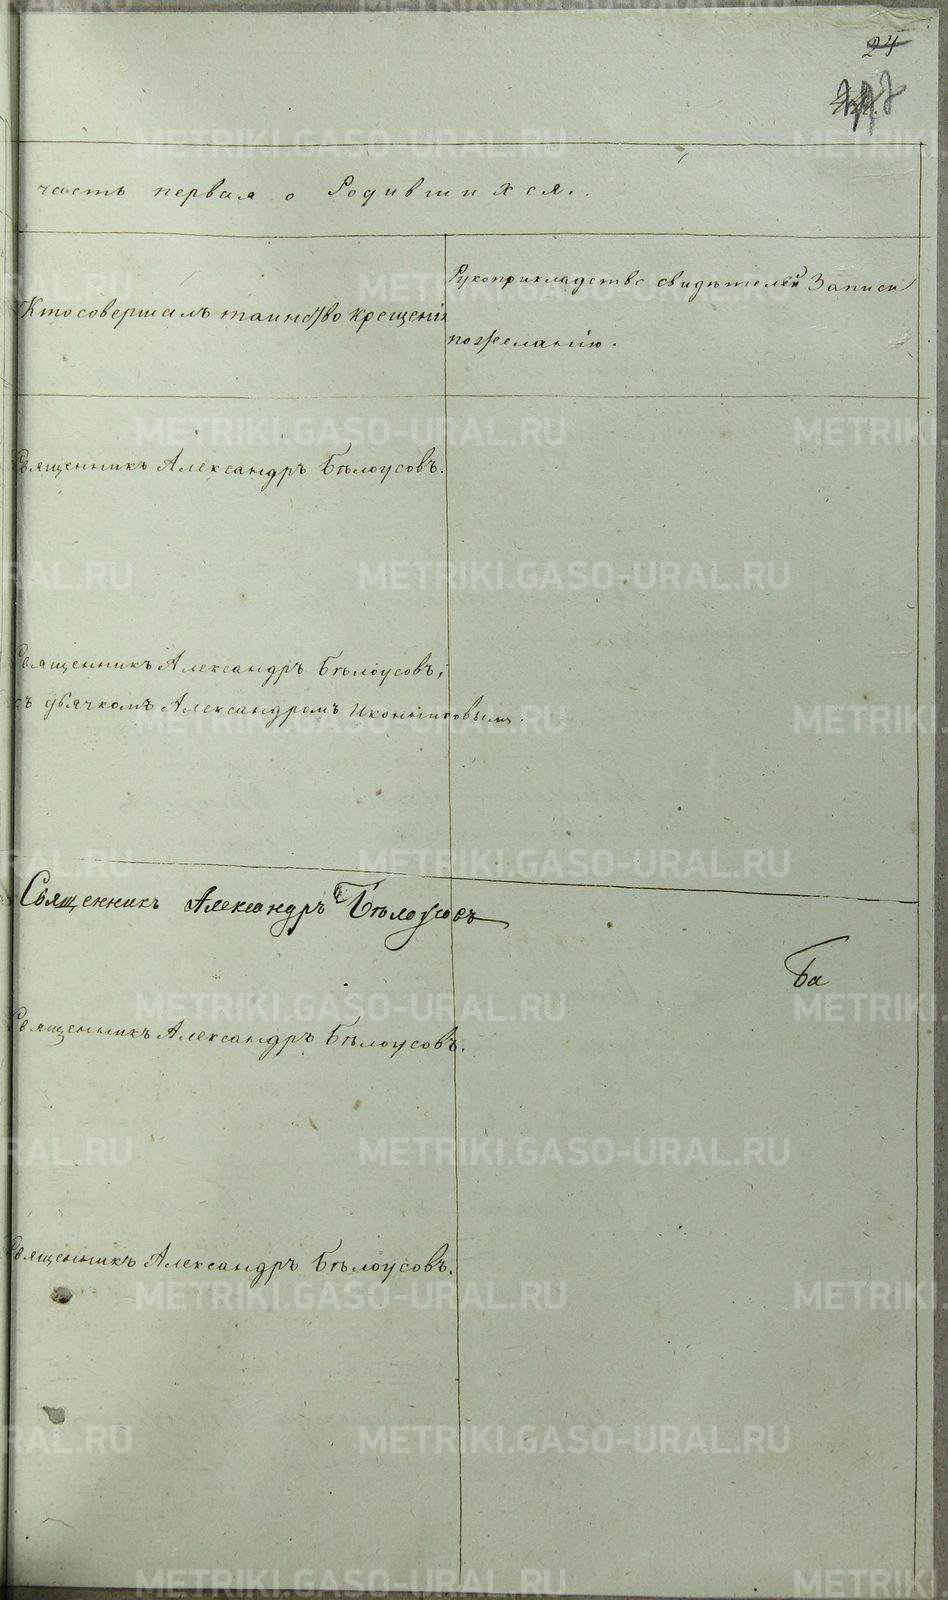 24
часть первая о Родившихся.
Кто совершалъ таинство крещенія
Рукоприкладство свидѣтелей Записи
по желанію.
Священникъ Александръ Бѣлоусовъ.
Священникъ Александръ Бѣлоусовъ,
съ дьячкомъ Александромъ Иконниковымъ.
Священникъ Александръ Бѣлоусовъ
Ба
Священникъ Александръ Бѣлоусовъ.
Священникъ Александръ Бѣлоусовъ.
METRIKI.GASO-URAL.RU